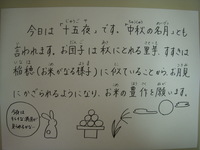 今日は「十五夜」です。「中秋の名月」とも
言われます。お団子は秋にとれる里芋、すすきは
稲穂(お米がなる様子)に似ていることから、お月見
にかざられるようになり、お米の豊作を願います。
今日は